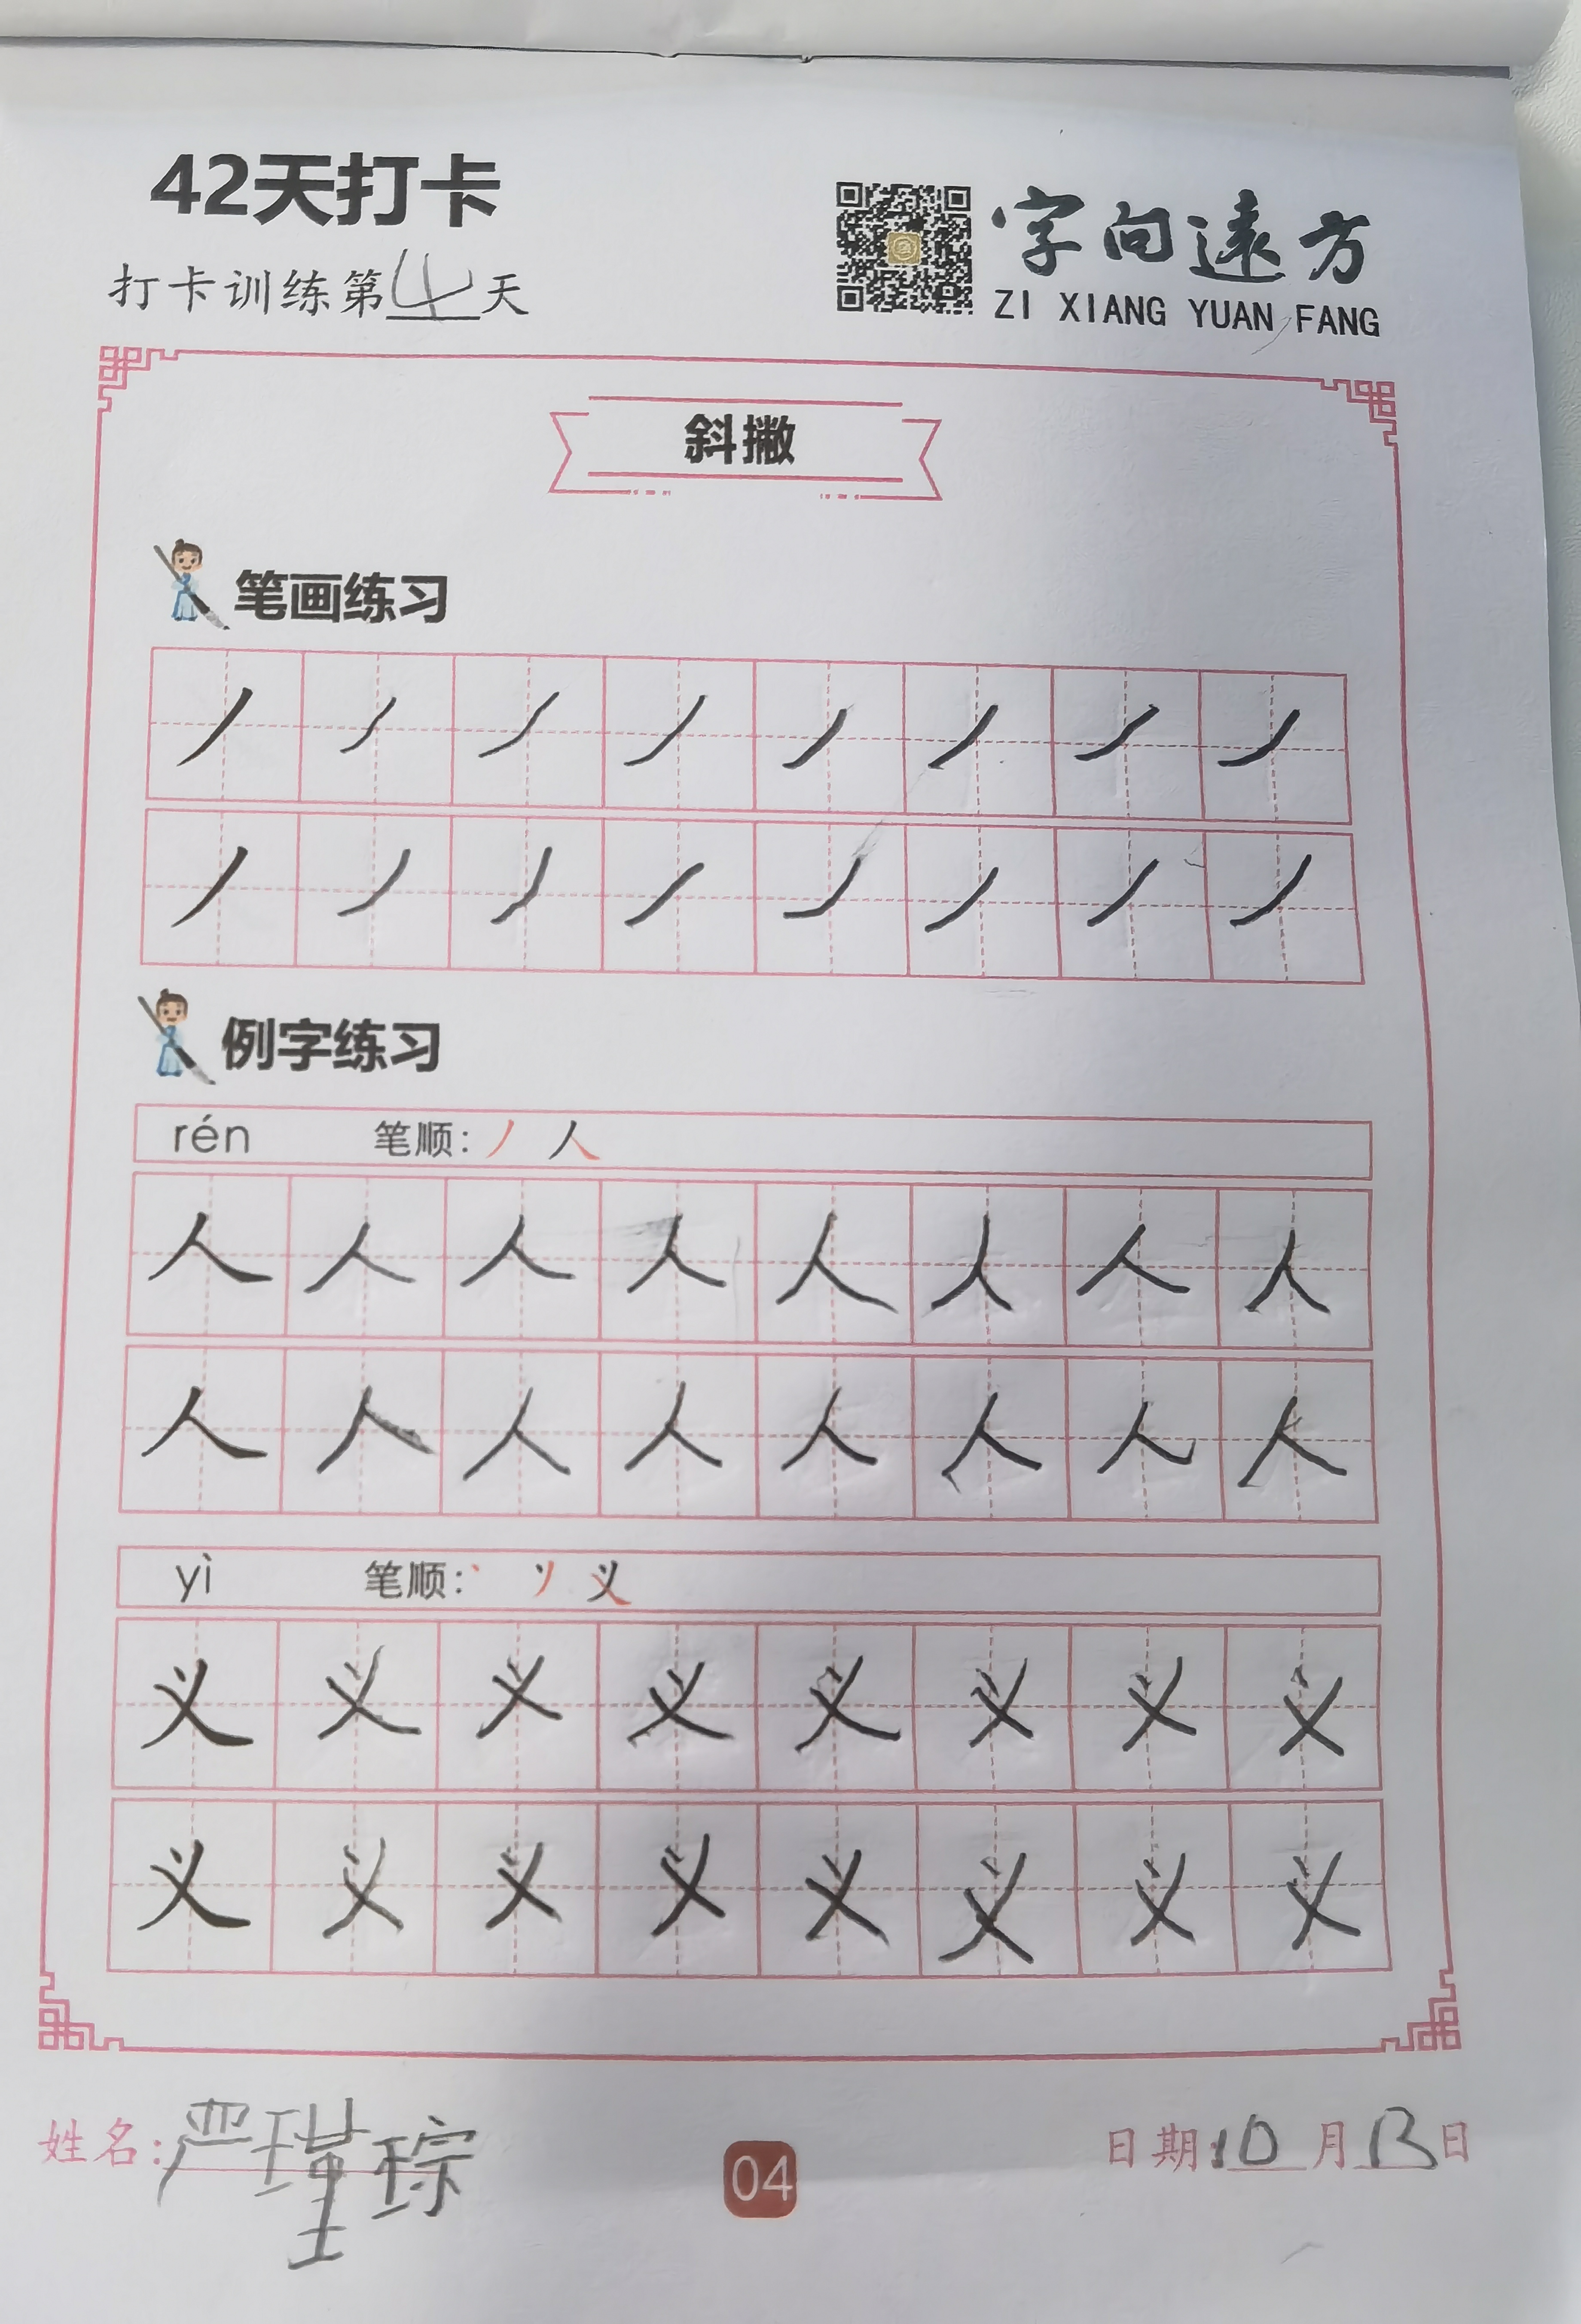 42天打卡
打卡训练第4天
字向遠方
ZI XIANG YUAN FANG
斜撇
笔画练习
丿丿丿丿丿丿丿丿
丿丿丿丿丿丿丿丿
例字练习
rén 笔顺：丿 人
人人人人人人人人
人人人人人人人人
yì 笔顺：丶 丷 义
义义义义义义义义
义义义义义义义义
姓名：严瑾琮
04
日期：10月13日